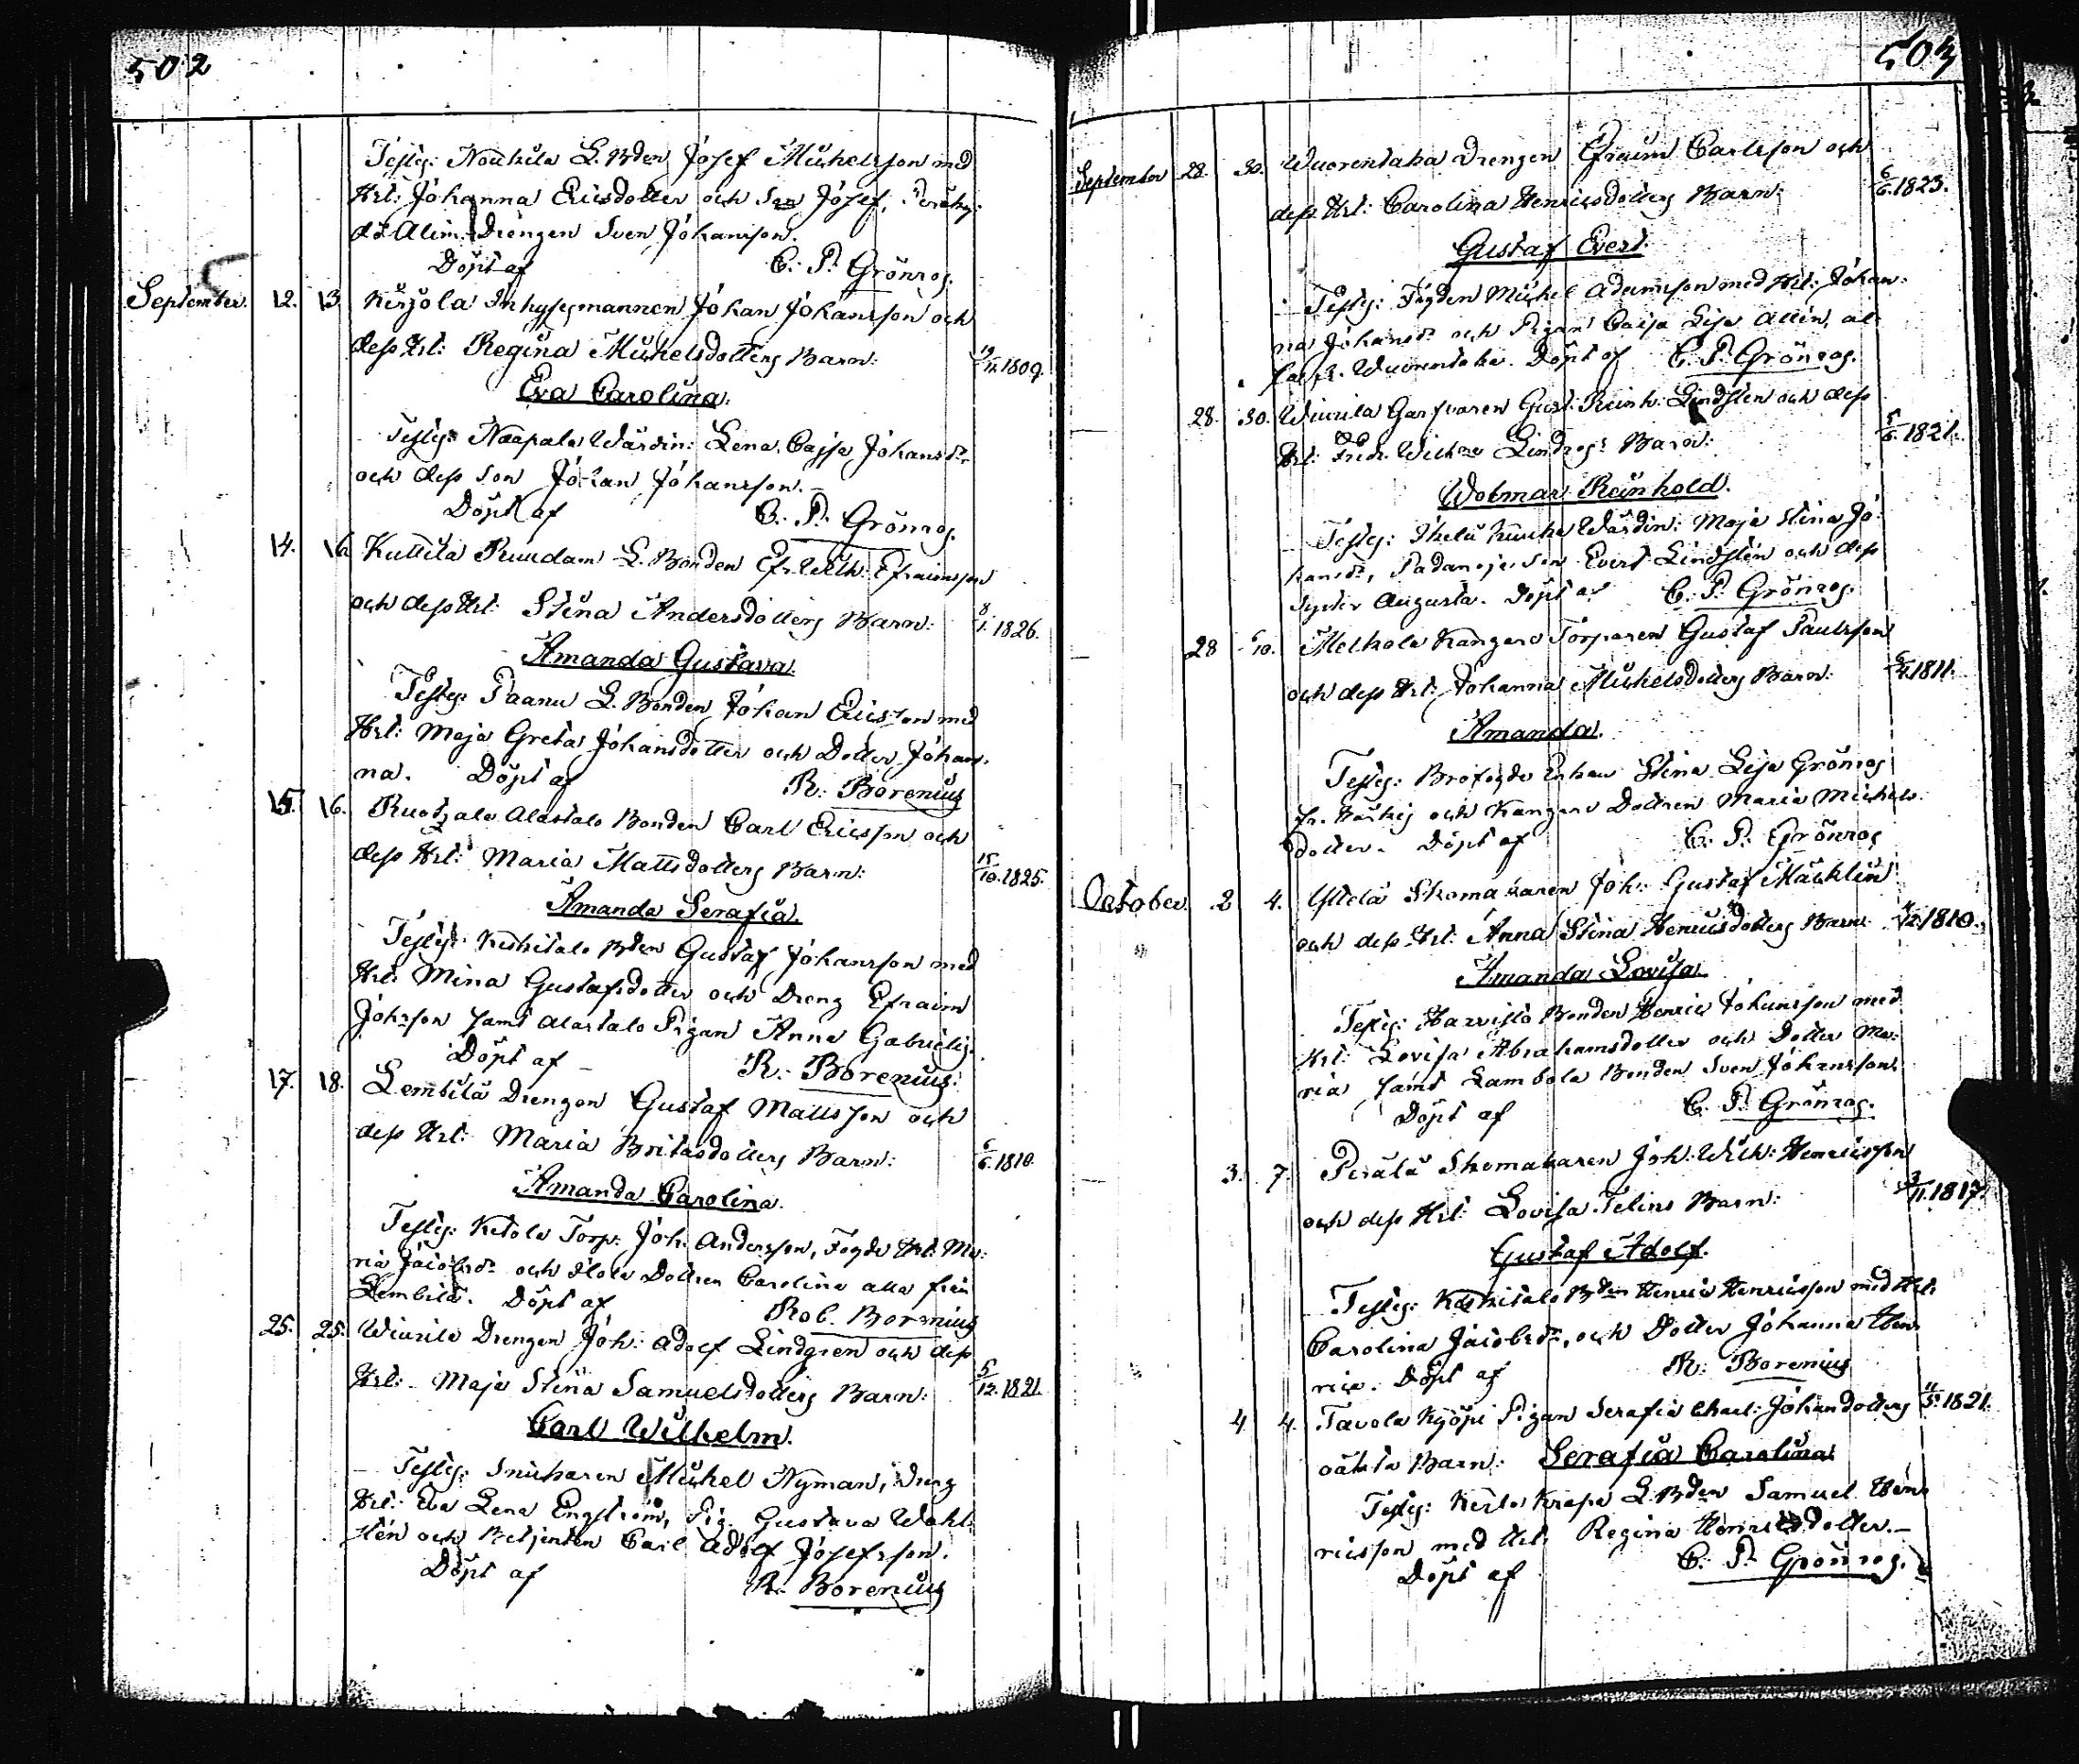 502
Testes: Noukila L. Bden Josef Michelsson med
Hst: Johanna Ericsdotter och Son Josef,
Drengen Sven Johansson.
Döpt af C. P. Grönros.
September. 12. 13. Kerjola Inhysesmannen Johan Johansson och
dess Hst: Regina Michelsdotters Barn: 1809.
Eva Carolina.
Testes: Naapala Wärdin: Lena Cajsa Johansdr
och dess Son Johan Johansson.
Döpt af C. P. Grönros.
14. 16. Kuttila Ruudam L. Bonden Efr. Wilh: Efraimsson
och dess Hst: Stina Andersdotters Barn: 8/1. 1826.
Amanda Gustava.
Testes: Paanu L. Bonden Johan Ericsson med
Hst: Maja Greta Johansdotter och Dotter Johan-
na. Döpt af R. Borenius
15. 16. Ruotzala Alastalo Bonden Carl Ericsson och
dess Hst: Maria Mattsdotters Barn: 15/10. 1825.
Amanda Serafia.
Testes: Keskitalo Bden Gustaf Johansson med
Hst: Mina Gustafsdotter och Dreng Efraim
Johsson samt Alastalo Pigan Anna Gabrielsd.
Döpt af R. Borenius.
17. 18. Lembilä Drengen Gustaf Mattsson och
dess Hst: Maria Britasdotters Barn: 6/6. 1810.
Amanda Carolina.
Testes: Ketola Torp: Joh: Andersson, Fogde Hst: Ma-
ria Jacobsdr och Dottren Carolina alla från
Lembilä. Döpt af Rob. Borenius
25. 25. Wiurila Drengen Joh: Adolf Lindgren och dess
Hst: Maja Stina Samuelsdotters Barn: 5/12. 1821.
Carl Wilhelm.
Testes: Snickaren Michel Nyman, Dreng
Hst: Eva Lena Engström, Pig. Gustava Wahl-
stén och Betjenten Carl Adolf Josefsson.
Döpt af R. Borenius
503
September 28. 30. Wuorentaka Drengen Efraim Carlsson och
dess Hst: Carolina Henricsdotters Barn: 6/6. 1823.
Gustaf Evert.
Testes: Fogden Michel Adamsson med Hst: Johan-
na Johansdr och Pigan Caisa Lisa Allén, al-
la fr. Wuorentaka. Döpt af C. P. Grönros.
28. 30. Wiurila Garfvaren Gust: Reinh: Lindstén och dess
Hst: Fredr. Wilhna Lindros Barn: 1821.
Wolmar Reinhold.
Testes: Wärdin: Maja Stina Jo-
hansdr, Son Evert Lindstén och dess
Syster Augusta. Döpt af C. P. Grönros.
28 5/10. Melkola Kangare Torparen Gustaf Paulsson
och dess Hst: Johanna Michelsdotters Barn: 1811.
Amanda.
Testes: Brofogde Enkan Stina Lisa Grönros
och Kangare Dottren Maria Michels-
dotter. Döpt af C. P. Grönros
October. 2. 4. Skomakaren Joh: Gustaf Mäcklin
och dess Hst: Anna Stina Henricsdotters Barn: 1810.
Amanda Lovisa
Testes: Harvisto Bonden Henric Johansson med
Hst: Lovisa Abrahamsdotter och Dotter Ma-
ria samt Lambola Bonden Sven Johansson.
Döpt af C. P. Grönros.
3. 7. Perälä Skomakaren Joh: Wilh: Henricsson
och dess Hst: Lovisa Telins Barn: 1817.
Gustaf Adolf.
Testes: Keskitalo Bden Henric Henricsson med Hst:
Carolina Jacobsdr, och Dotter Johanna Hen-
rica. Döpt af R. Borenius
4. 4. Tavola Kyöpi Pigan Serafia Charl: Johansdotters 1821.
oäkta Barn: Serafia Carolina
Testes: L. Bden Samuel Hen-
ricsson med Hst: Regina Henricsdotter.
Döpt af C. P. Grönros.